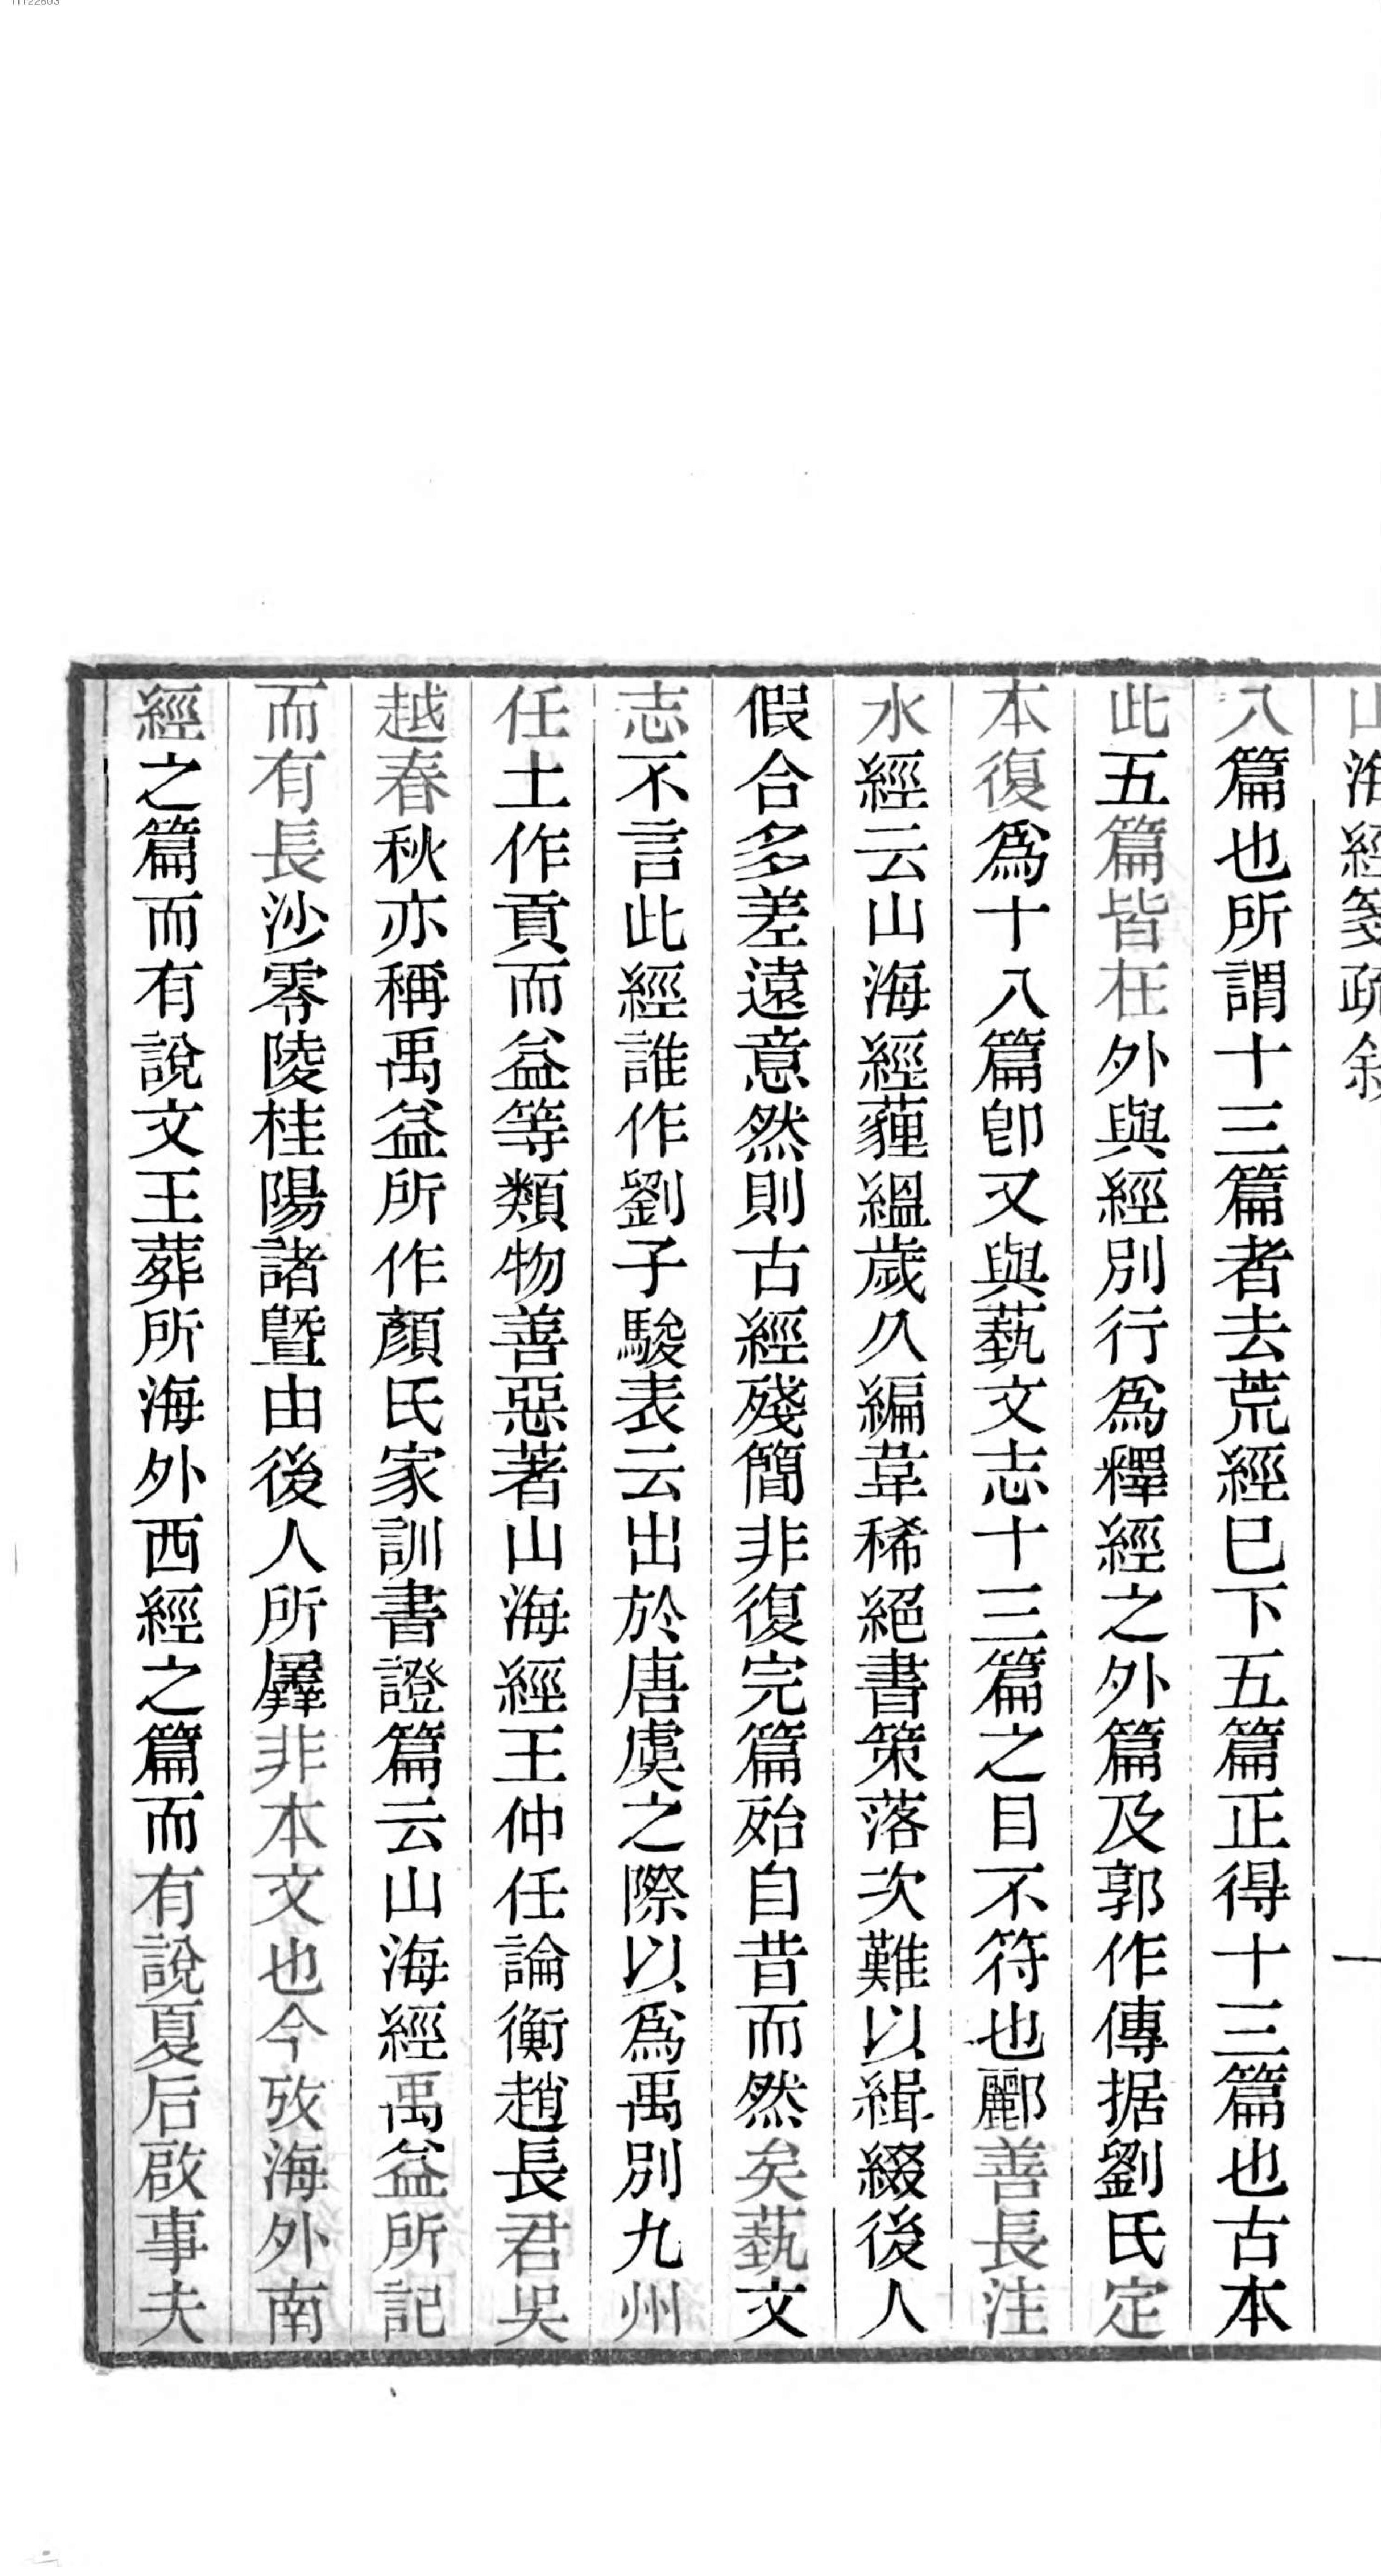 山海經箋疏叙
一
八篇也所謂十三篇者去荒經巳下五篇正得十三篇也古本
此五篇皆在外與經別行爲釋經之外篇及郭作傳据劉氏定
本復爲十八篇卽又與藝文志十三篇之目不符也酈善長注
水經云山海經薶縕歲久編韋稀絕書策落次難以緝綴後人
假合多差遠意然則古經殘簡非復完篇殆自昔而然矣藝文
志不言此經誰作劉子駿表云出於唐虞之際以爲禹別九州
任土作貢而益等類物善惡著山海經王仲任論衡趙長君吳
越春秋亦稱禹益所作顏氏家訓書證篇云山海經禹益所記
而有長沙零陵桂陽諸曁由後人所羼非本文也今攷海外南
經之篇而有說文王葬所海外西經之篇而有說夏后啟事夫